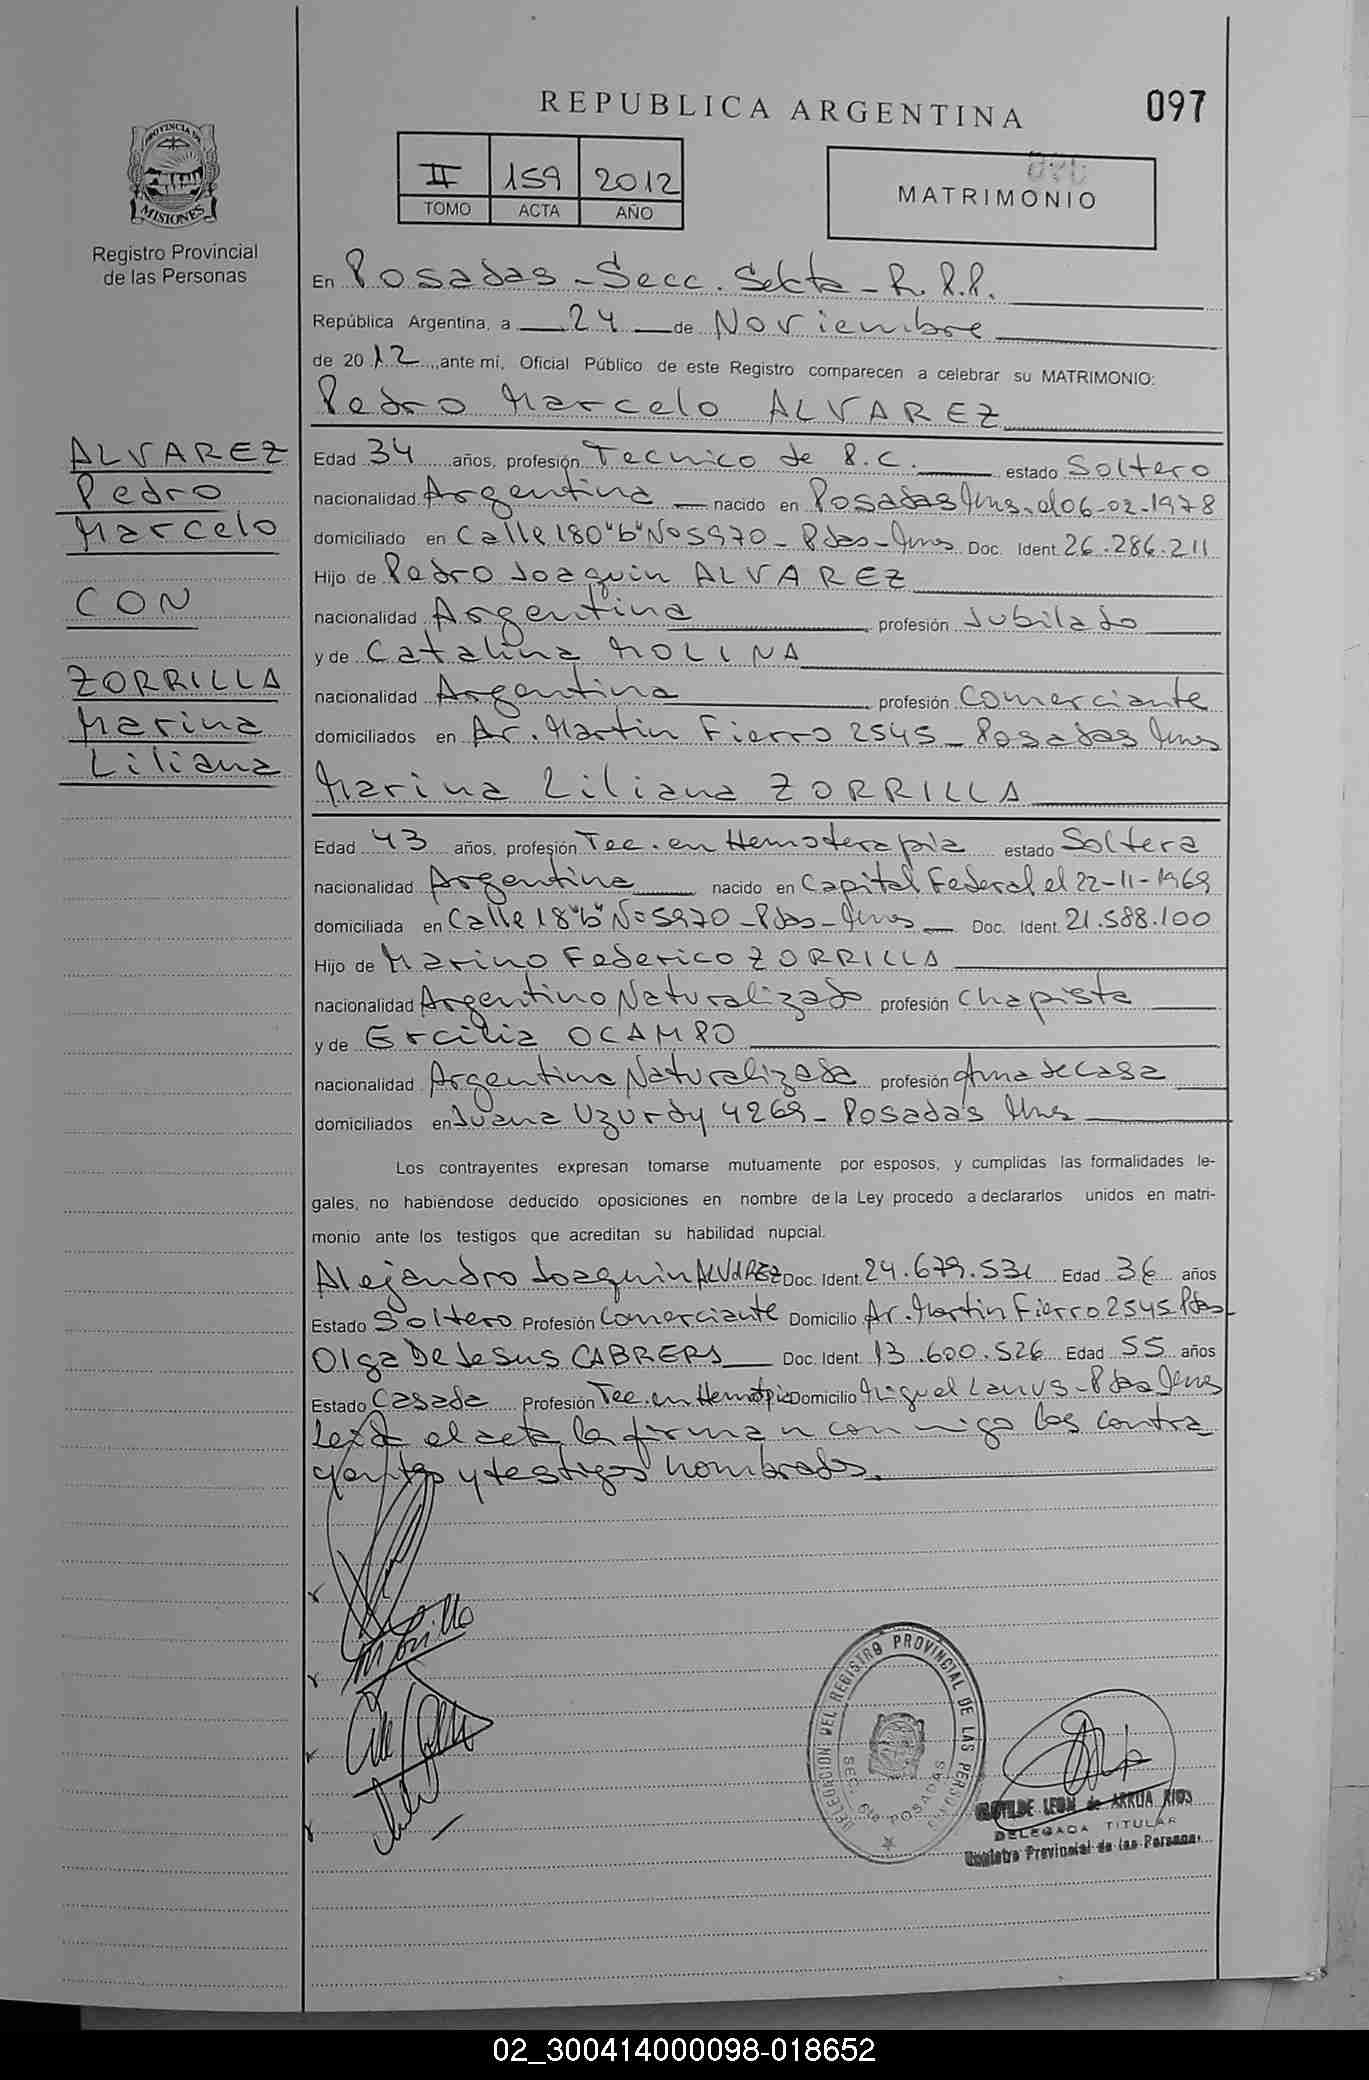 REPUBLICA ARGENTINA
097
PROVINCIA DE
MISIONES
Registro Provincial
de las Personas
II 159 2012
TOMO ACTA AÑO
MATRIMONIO
En Posadas - Secc. Sexta - R.P.P.
República Argentina, a 24 de Noviembre
de 2012, ante mí, Oficial Público de este Registro comparecen a celebrar su MATRIMONIO:
Pedro Marcelo ALVAREZ
ALVAREZ
Pedro
Marcelo
CON
ZORRILLA
Marina
Liliana
Edad 34 años, profesión Tecnico de P.C. estado Soltero
nacionalidad Argentina nacido en Posadas Mnes. el 06-02-1978
domiciliado en Calle 180 "b" Nº 5970 - Pdas - Mnes Doc. Ident. 26.286.211
Hijo de Pedro Joaquin ALVAREZ
nacionalidad Argentina profesión Jubilado
y de Catalina MOLINA
nacionalidad Argentina profesión Comerciante
domiciliados en Av. Martin Fierro 2545 - Posadas Mnes
Marina Liliana ZORRILLA
Edad 43 años, profesión Tec. en Hemoterapia estado Soltera
nacionalidad Argentina nacido en Capital Federal el 22-11-1969
domiciliada en Calle 18 "b" Nº 5970 - Pdas - Mnes Doc. Ident. 21.588.100
Hijo de Marino Federico ZORRILLA
nacionalidad Argentino Naturalizado profesión Chapista
y de Ercilia OCAMPO
nacionalidad Argentina Naturalizada profesión Ama de Casa
domiciliados en Juana Uzurdy 4269 - Posadas Mnes
Los contrayentes expresan tomarse mutuamente por esposos, y cumplidas las formalidades le-
gales, no habiéndose deducido oposiciones en nombre de la Ley procedo a declararlos unidos en matri-
monio ante los testigos que acreditan su habilidad nupcial.
Alejandro Joaquin ALVAREZ Doc. Ident. 24.679.531 Edad 36 años
Estado Soltero Profesión Comerciante Domicilio Av. Martin Fierro 2545 Pdas
Olga De Jesus CABRERA Doc. Ident. 13.600.526 Edad 55 años
Estado Casada Profesión Tec. en Domicilio Miguel Lanus - Pdas Mnes
Leida el acta, la firman conmigo los contra
yentes y testigos nombrados.
M Zorrilla
DELEGACION DEL REGISTRO PROVINCIAL DE LAS PERSONAS
SEC. 6ª POSADAS
LEON de ARRUA RIOS
DELEGADA TITULAR
Registro Provincial de las Personas
02_300414000098-018652